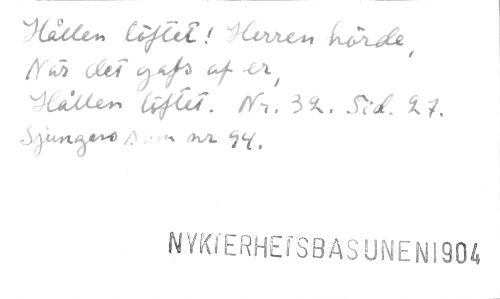 Hållen löftet! Herren hörde,
När det gafs af er,
Hållen löftet. Nr. 32. Sid. 27.
Sjunges som nr 94.
NYKTERHETSBASUNEN1904